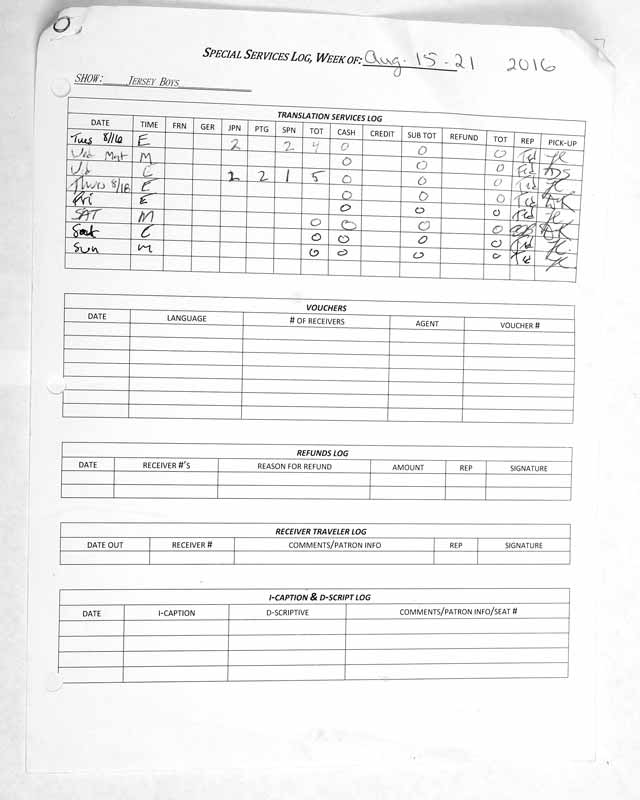 SPECIAL SERVICES LOG, WEEK OF: Aug. 15-21 2016
SHOW: JERSEY BOYS
TRANSLATION SERVICES LOG
DATE TIME FRN GER JPN PTG SPN TOT CASH CREDIT SUB TOT REFUND TOT REP PICK-UP
Tues 8/16 E 2 2 4 0 0 0 Ted
Wed Mat M 0 0 0 Ted
Wed E 2 2 1 5 0 0 0 Ted
Thurs 8/18 E 0 0 0 Ted
Fri E 0 0 0 Ted
SAT M 0 0 0 0
Sat E 0 0 0 0 Ted
Sun M 0 0 0 0 Ted
VOUCHERS
DATE LANGUAGE # OF RECEIVERS AGENT VOUCHER #
REFUNDS LOG
DATE RECEIVER #'S REASON FOR REFUND AMOUNT REP SIGNATURE
RECEIVER TRAVELER LOG
DATE OUT RECEIVER # COMMENTS/PATRON INFO REP SIGNATURE
I-CAPTION & D-SCRIPT LOG
DATE I-CAPTION D-SCRIPTIVE COMMENTS/PATRON INFO/SEAT #